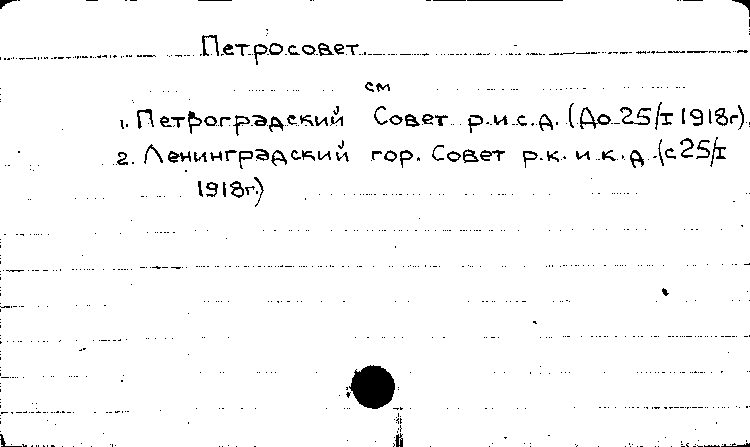 Петросовет.
см
1. Петроградский Совет р.и.с.д. (До 25/I 1918г).
2. Ленинградский гор. Совет р.к. и к.д. (с 25/I
1918г.)